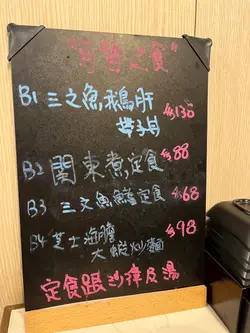 B1 三文魚,鵝肝
$138
B2 関東煮定食 $88
B3 三文魚鰭定食 $68
B4 芝士海膽
大蝦炒麵 $98
定食跟沙律及湯